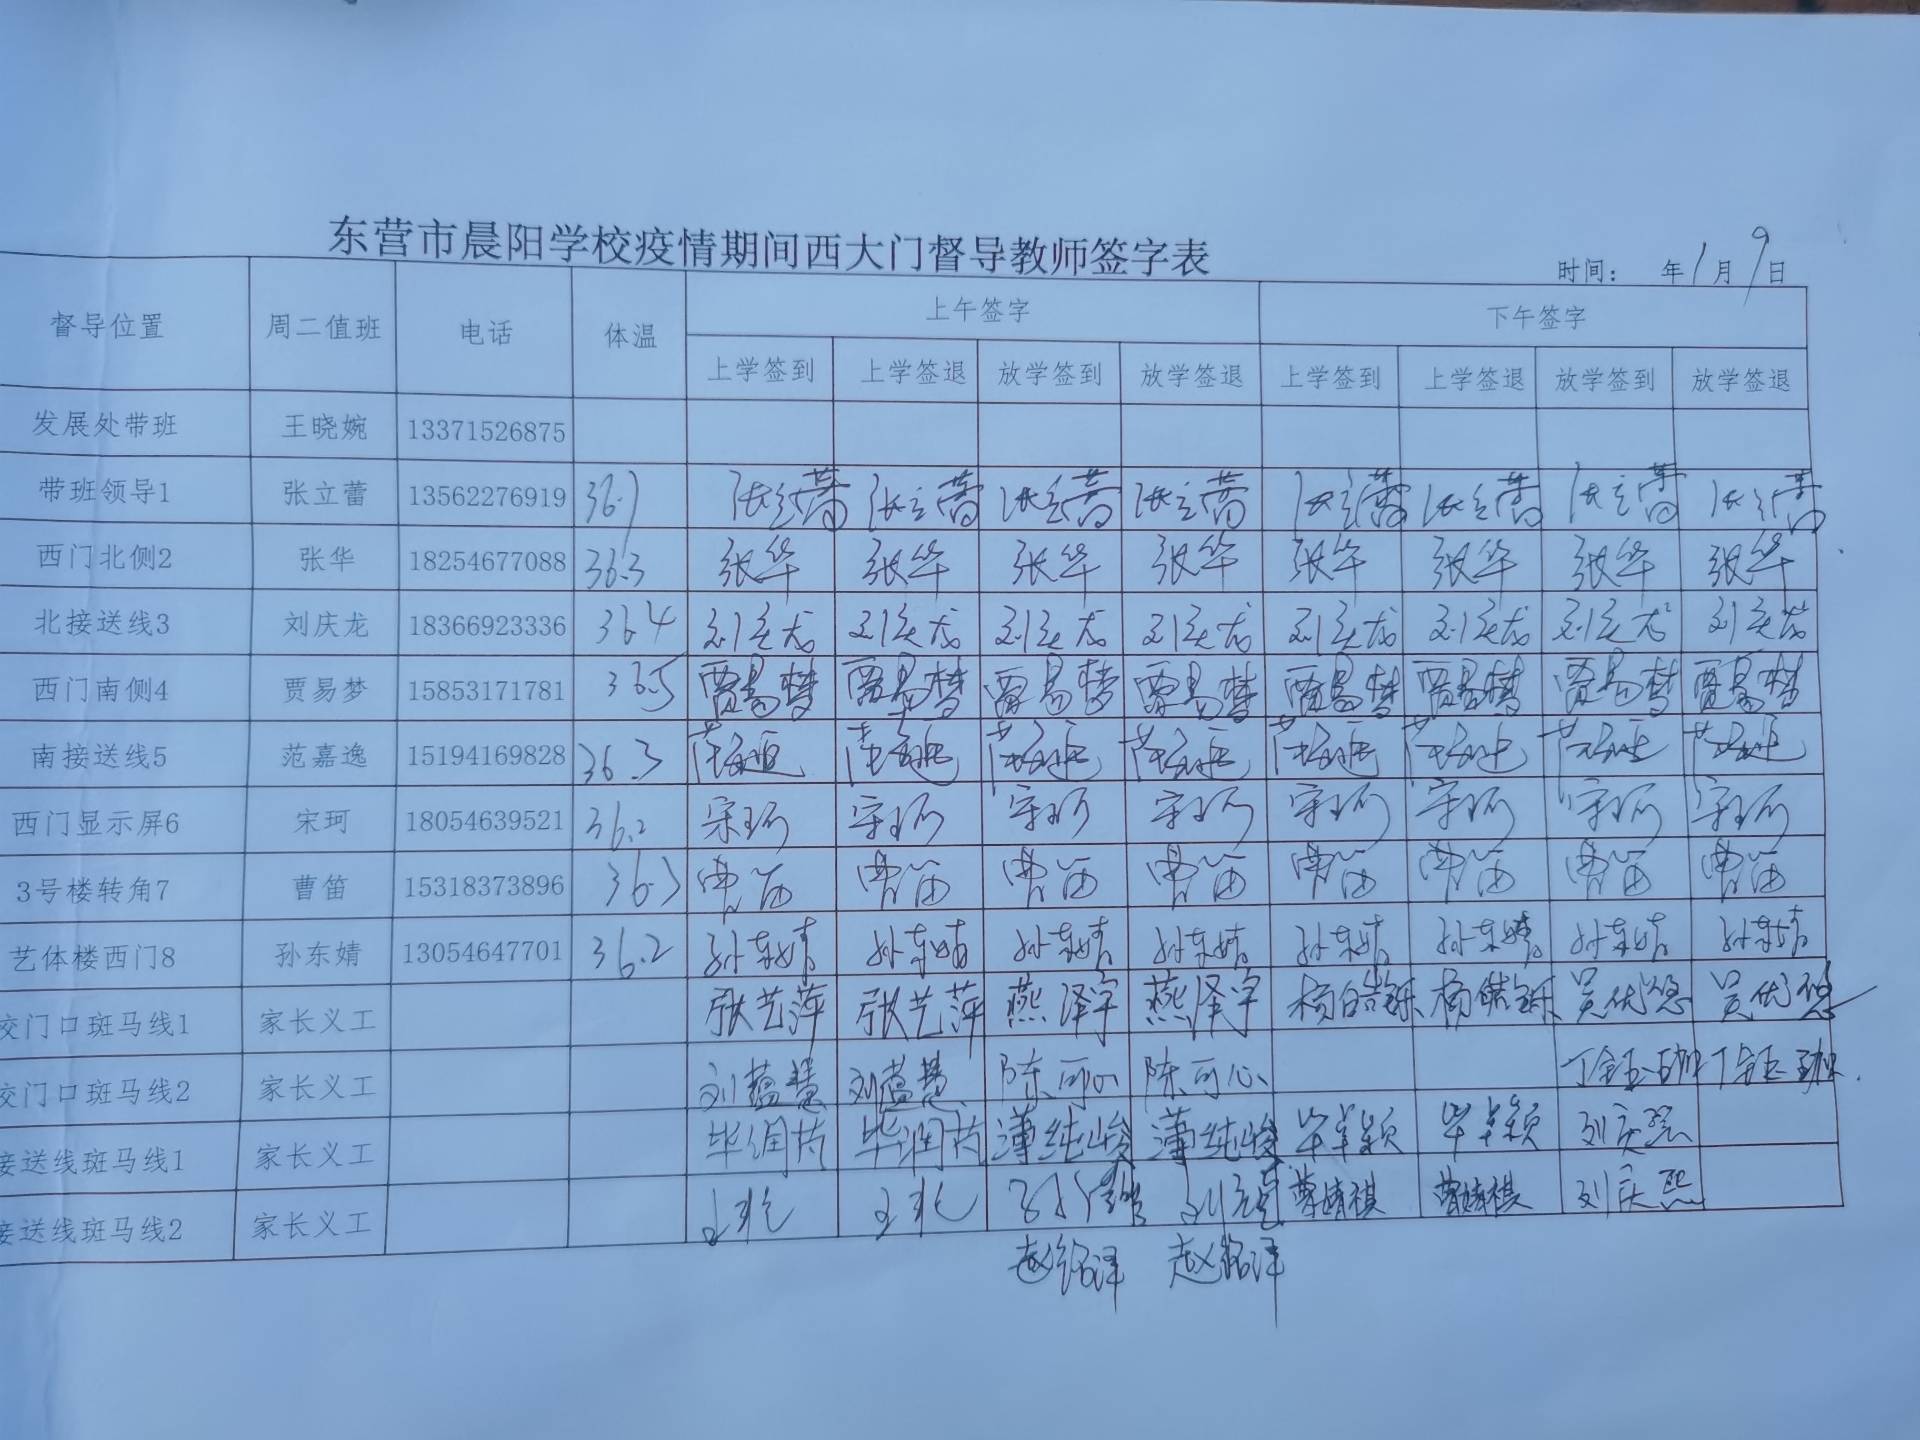 东营市晨阳学校疫情期间西大门督导教师签字表
时间： 年1月9日
督导位置 周二值班 电话 体温 上午签字 下午签字
上学签到 上学签退 放学签到 放学签退 上学签到 上学签退 放学签到 放学签退
发展处带班 王晓婉 13371526875
带班领导1 张立蕾 13562276919 36.7 张立蕾 张立蕾 张立蕾 张立蕾 张立蕾 张立蕾 张立蕾 张立蕾
西门北侧2 张华 18254677088 36.3 张华 张华 张华 张华 张华 张华 张华 张华
北接送线3 刘庆龙 18366923336 36.4 刘庆龙 刘庆龙 刘庆龙 刘庆龙 刘庆龙 刘庆龙 刘庆龙 刘庆龙
西门南侧4 贾易梦 15853171781 36.5 贾易梦 贾易梦 贾易梦 贾易梦 贾易梦 贾易梦 贾易梦 贾易梦
南接送线5 范嘉逸 15194169828 36.3 范嘉逸 范嘉逸 范嘉逸 范嘉逸 范嘉逸 范嘉逸 范嘉逸 范嘉逸
西门显示屏6 宋珂 18054639521 36.2 宋珂 宋珂 宋珂 宋珂 宋珂 宋珂 宋珂 宋珂
3号楼转角7 曹笛 15318373896 36.3 曹笛 曹笛 曹笛 曹笛 曹笛 曹笛 曹笛 曹笛
艺体楼西门8 孙东婧 13054647701 36.2 孙东婧 孙东婧 孙东婧 孙东婧 孙东婧 孙东婧 孙东婧 孙东婧
校门口斑马线1 家长义工 张艺萍 张艺萍 燕泽宇 燕泽宇 吴优悠 吴优悠
校门口斑马线2 家长义工 刘蕴慧 刘蕴慧 陈可心 陈可心
接送线斑马线1 家长义工 毕润芃 毕润芃 薄纯峻 薄纯峻 毕卓颖 毕卓颖
接送线斑马线2 家长义工 曹婧祺 曹婧祺 刘庆熙
赵铭泽 赵铭泽